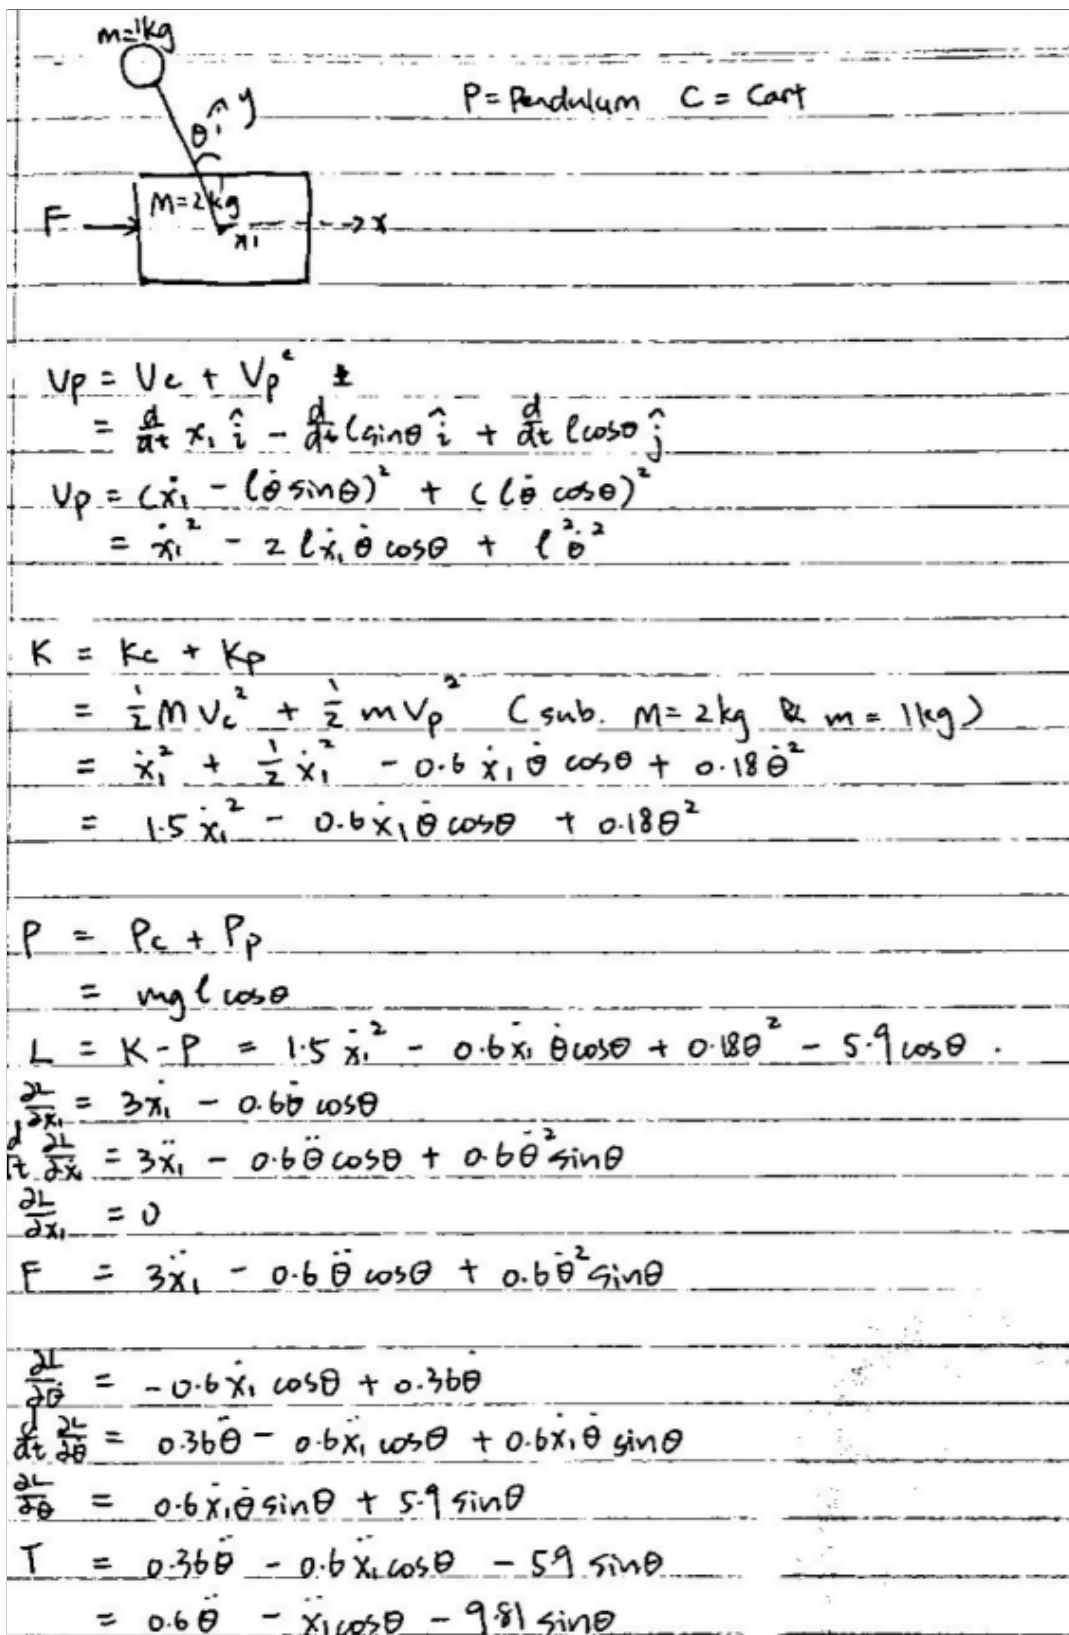 m=1kg
P = Pendulum C = Cart
θ y
M=2kg
F → x
x₁
Vp = Vc + Vpᶜ
= d/dt x₁ î - d/dt lsinθ î + d/dt lcosθ ĵ
Vp = (ẋ₁ - lθ̇ sinθ)² + (lθ̇ cosθ)²
= ẋ₁² - 2lẋ₁θ̇ cosθ + l²θ̇²
K = Kc + Kp
= ½ M Vc² + ½ m Vp² (sub. M = 2kg & m = 1kg)
= ẋ₁² + ½ ẋ₁² - 0.6 ẋ₁ θ̇ cosθ + 0.18 θ̇²
= 1.5 ẋ₁² - 0.6 ẋ₁ θ̇ cosθ + 0.18 θ̇²
P = Pc + Pp
= mg l cosθ
L = K - P = 1.5 ẋ₁² - 0.6 ẋ₁ θ̇ cosθ + 0.18 θ̇² - 5.9 cosθ .
∂L/∂ẋ₁ = 3ẋ₁ - 0.6θ̇ cosθ
d/dt ∂L/∂ẋ₁ = 3ẍ₁ - 0.6θ̈ cosθ + 0.6θ̇² sinθ
∂L/∂x₁ = 0
F = 3ẍ₁ - 0.6 θ̈ cosθ + 0.6θ̇² sinθ
∂L/∂θ̇ = -0.6 ẋ₁ cosθ + 0.36θ̇
d/dt ∂L/∂θ̇ = 0.36θ̈ - 0.6ẍ₁ cosθ + 0.6ẋ₁θ̇ sinθ
∂L/∂θ = 0.6 ẋ₁θ̇ sinθ + 5.9 sinθ
T = 0.36θ̈ - 0.6 ẍ₁ cosθ - 5.9 sinθ
= 0.6θ̈ - ẍ₁ cosθ - 9.81 sinθ